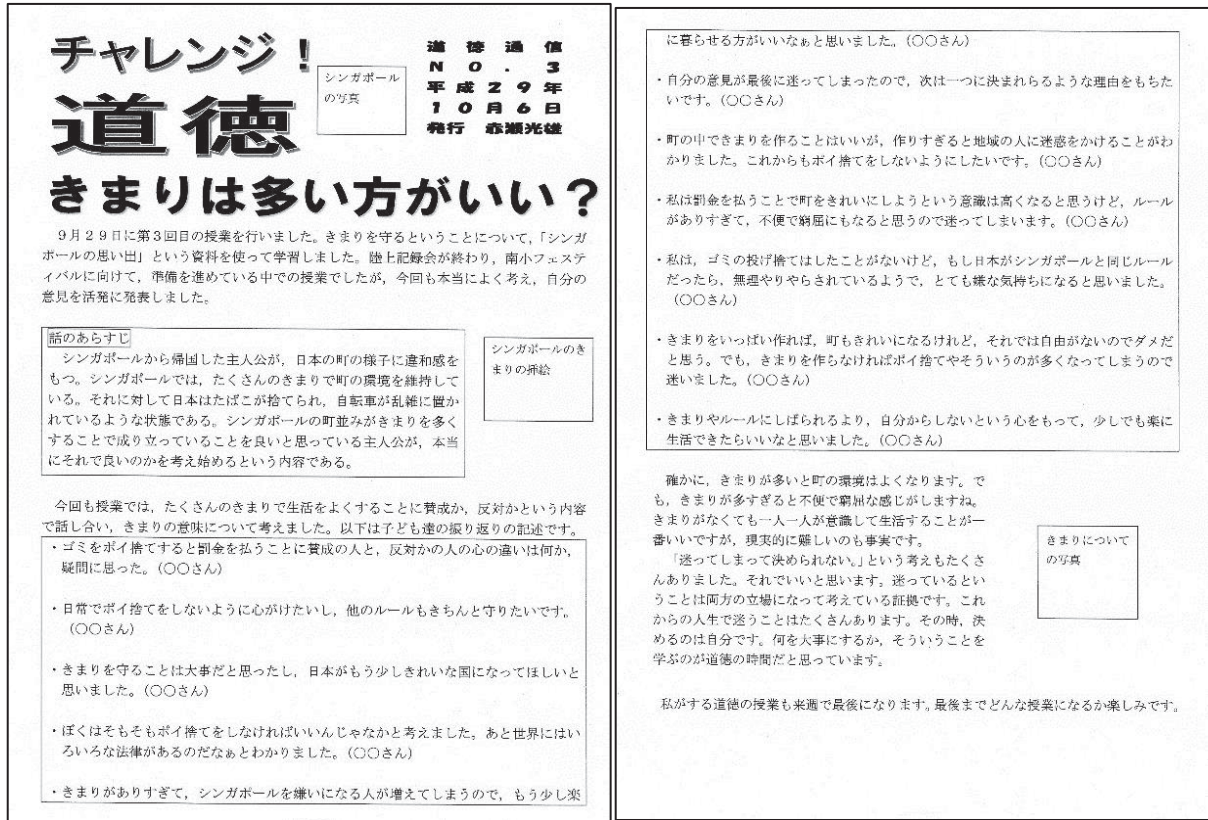 チャレンジ！
道徳
シンガポール
の写真
道徳通信
NO.3
平成29年
10月6日
発行　赤瀬光雄
きまりは多い方がいい？
　９月２９日に第３回目の授業を行いました。きまりを守るということについて，「シンガ
ポールの思い出」という資料を使って学習しました。陸上記録会が終わり，南小フェステ
ィバルに向けて，準備を進めている中での授業でしたが，今回も本当によく考え，自分の
意見を活発に発表しました。
話のあらすじ
　シンガポールから帰国した主人公が，日本の町の様子に違和感を
もつ。シンガポールでは，たくさんのきまりで町の環境を維持して
いる。それに対して日本はたばこが捨てられ，自転車が乱雑に置か
れているような状態である。シンガポールの町並みがきまりを多く
することで成り立っていることを良いと思っている主人公が，本当
にそれで良いのかを考え始めるという内容である。
シンガポールのき
まりの挿絵
　今回も授業では，たくさんのきまりで生活をよくすることに賛成か，反対かという内容
で話し合い，きまりの意味について考えました。以下は子ども達の振り返りの記述です。
・ゴミをポイ捨てすると罰金を払うことに賛成の人と，反対かの人の心の違いは何か，
疑問に思った。（○○さん）
・日常でポイ捨てをしないように心がけたいし，他のルールもきちんと守りたいです。
（○○さん）
・きまりを守ることは大事だと思ったし，日本がもう少しきれいな国になってほしいと
思いました。（○○さん）
・ぼくはそもそもポイ捨てをしなければいいんじゃなかと考えました。あと世界にはい
ろいろな法律があるのだなぁとわかりました。（○○さん）
・きまりがありすぎて，シンガポールを嫌いになる人が増えてしまうので，もう少し楽
に暮らせる方がいいなぁと思いました。（○○さん）
・自分の意見が最後に迷ってしまったので，次は一つに決まれらるような理由をもちた
いです。（○○さん）
・町の中できまりを作ることはいいが，作りすぎると地域の人に迷惑をかけることがわ
かりました。これからもポイ捨てをしないようにしたいです。（○○さん）
・私は罰金を払うことで町をきれいにしようという意識は高くなると思うけど，ルール
がありすぎて，不便で窮屈にもなると思うので迷ってしまいます。（○○さん）
・私は，ゴミの投げ捨てはしたことがないけど，もし日本がシンガポールと同じルール
だったら，無理やりやらされているようで，とても嫌な気持ちになると思いました。
（○○さん）
・きまりをいっぱい作れば，町もきれいになるけれど，それでは自由がないのでダメだ
と思う。でも，きまりを作らなければポイ捨てやそういうのが多くなってしまうので
迷いました。（○○さん）
・きまりやルールにしばられるより，自分からしないという心をもって，少しでも楽に
生活できたらいいなと思いました。（○○さん）
　確かに，きまりが多いと町の環境はよくなります。で
も，きまりが多すぎると不便で窮屈な感じがしますね。
きまりがなくても一人一人が意識して生活することが一
番いいですが，現実的に難しいのも事実です。
　「迷ってしまって決められない。」という考えもたくさ
んありました。それでいいと思います。迷っているとい
うことは両方の立場になって考えている証拠です。これ
からの人生で迷うことはたくさんあります。その時，決
めるのは自分です。何を大事にするか，そういうことを
学ぶのが道徳の時間だと思っています。
きまりについて
の写真
　私がする道徳の授業も来週で最後になります。最後までどんな授業になるか楽しみです。